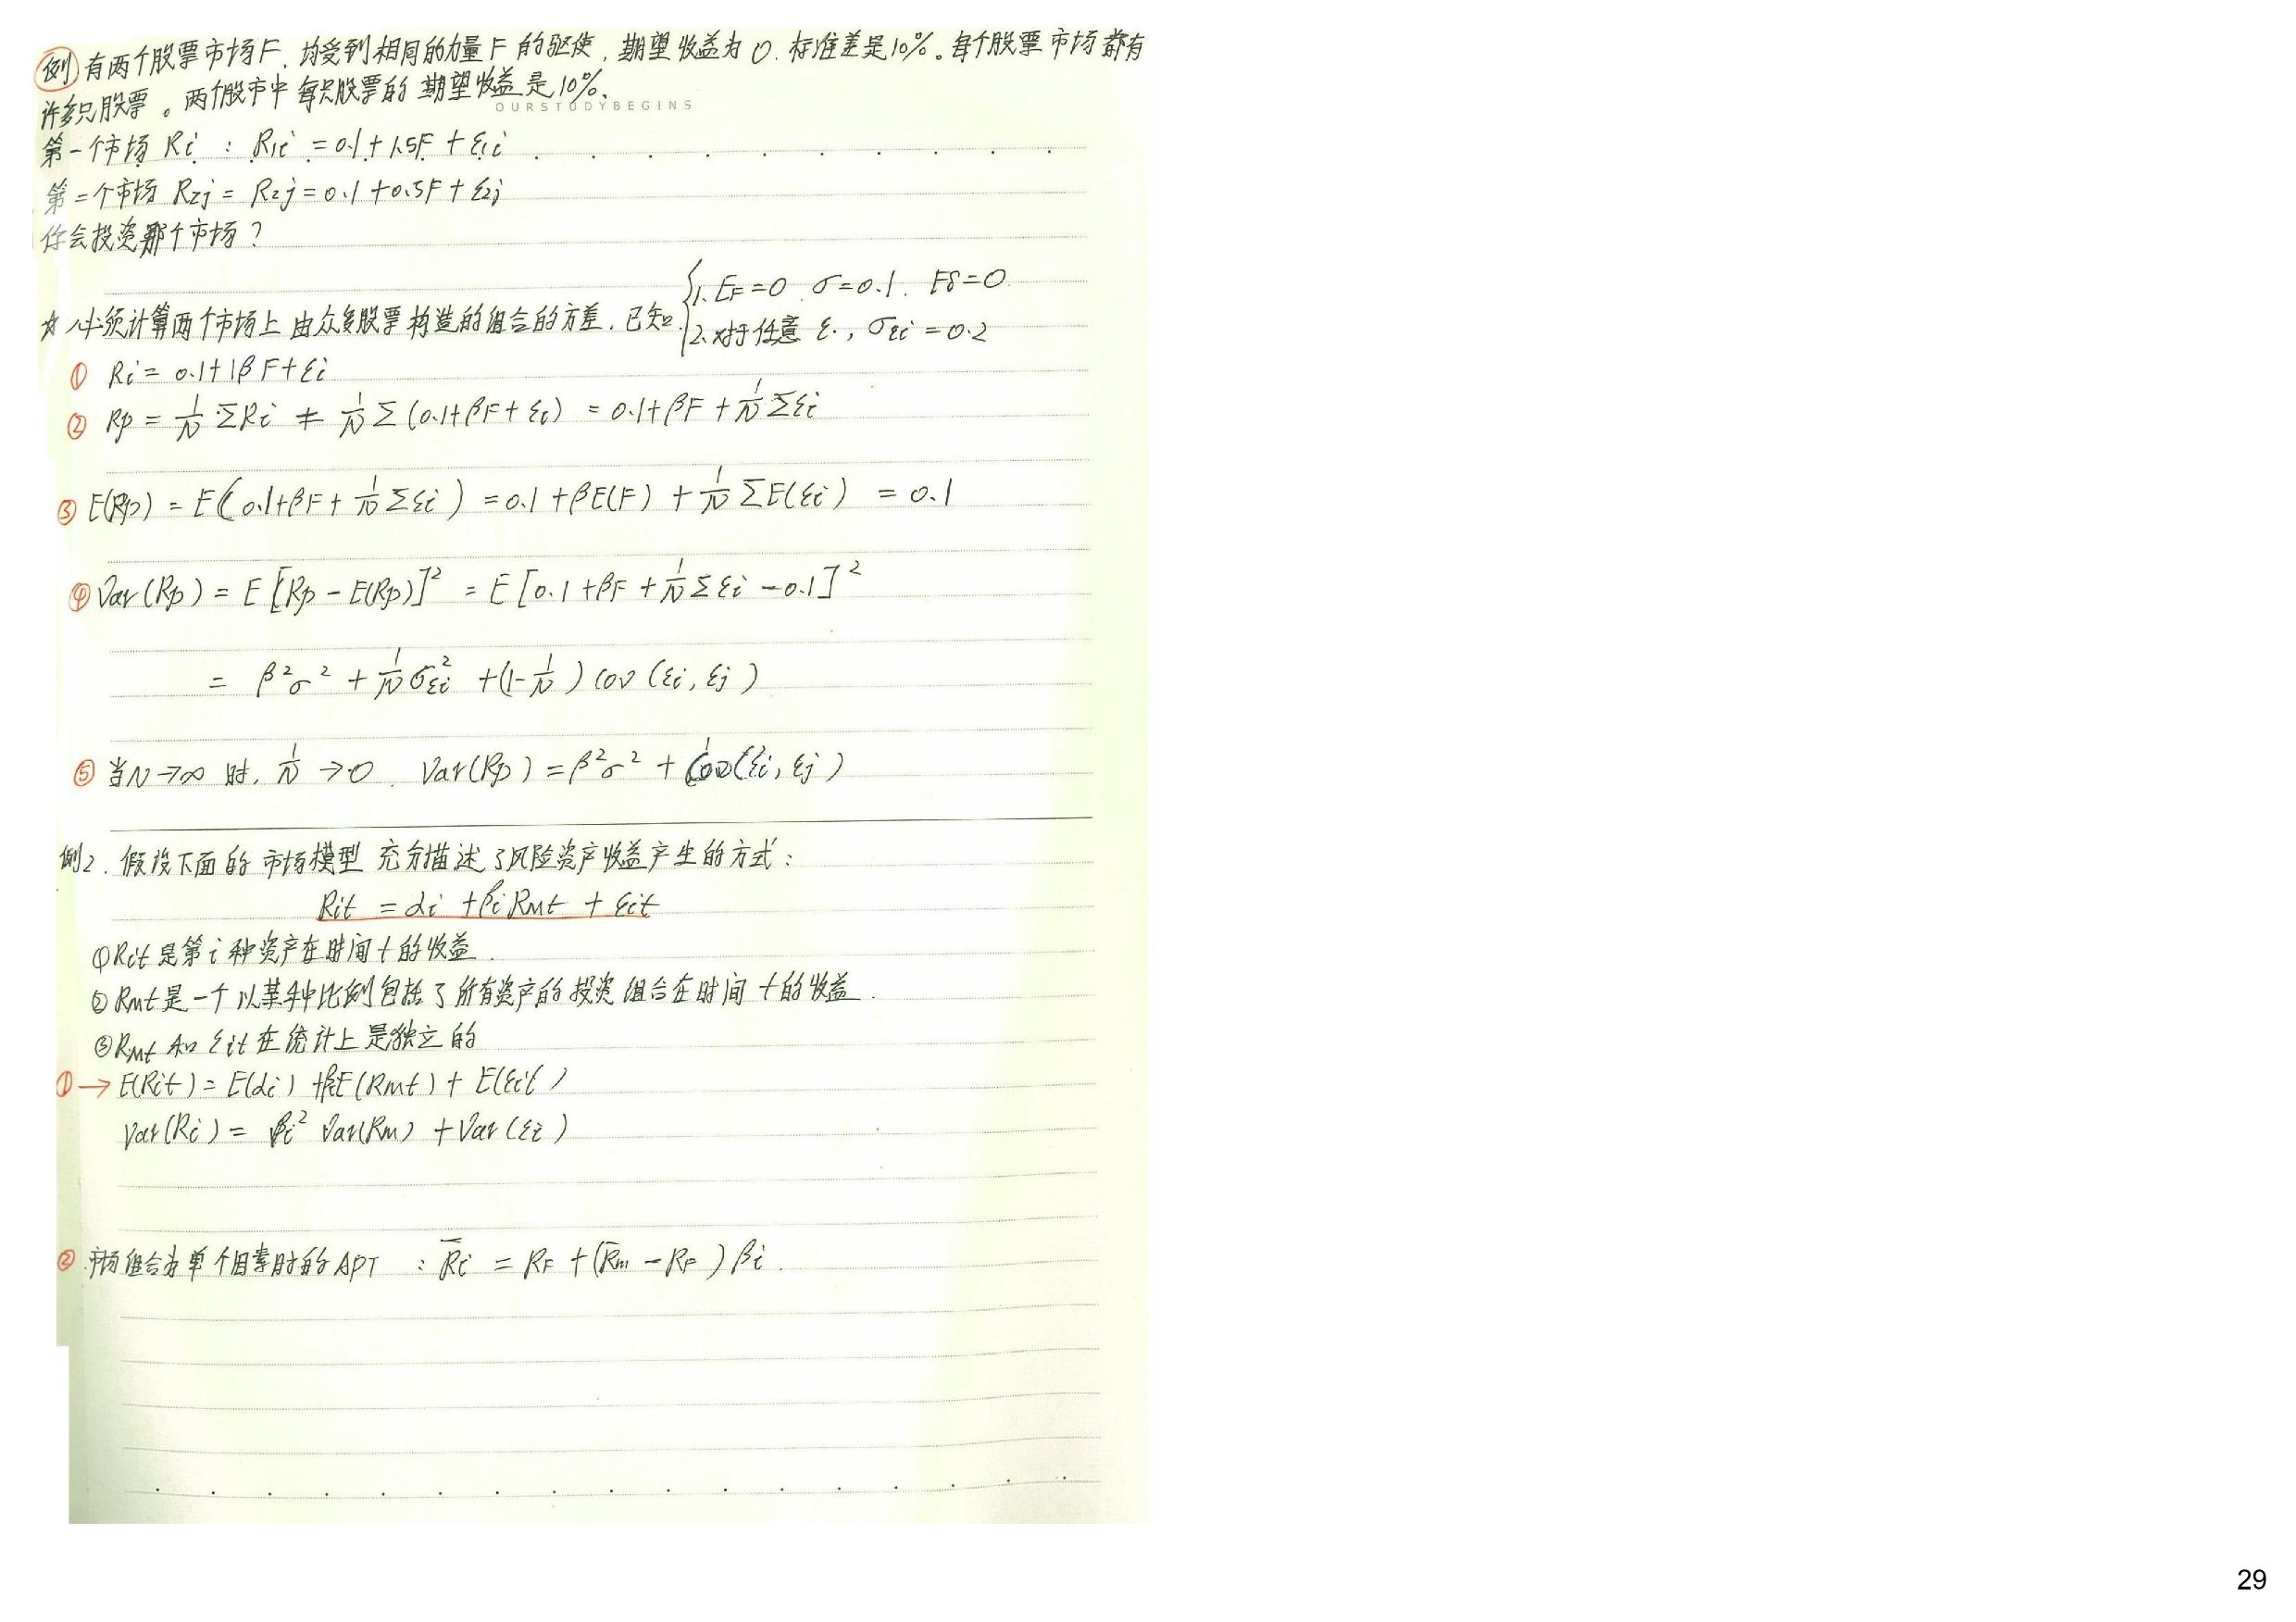 例 有两个股票市场F、均受到相同的力量F的驱使，期望收益为0.标准差是10%。每个股票市场都有
许多只股票。两个股市中每只股票的期望收益是10%.
OURSTUDYBEGINS
第一个市场 Ri : R1i = 0.1+1.5F + ε1i
第二个市场 R2j = R2j = 0.1+0.5F + ε2j
你会投资那个市场?
1. EF=0 σ=0.1. Eδ=0.
☆必须计算两个市场上由众多股票构造的组合的方差.已知
2.对于任意 ε., σεi = 0.2
① Ri = 0.1+1βF+εi
② Rp = 1/N ΣRi = 1/N Σ(0.1+βF+εi) = 0.1+βF + 1/N Σεi
③ E(Rp) = E(0.1+βF+ 1/N Σεi) = 0.1 +βE(F) + 1/N ΣE(εi) = 0.1
④ Var(Rp) = E[Rp-E(Rp)]² = E[0.1+βF + 1/N Σεi -0.1]²
= β²σ² + 1/N σ²εi +(1-1/N) cov(εi, εj)
⑤ 当N→∞ 时. 1/N →0. Var(Rp) = β²σ² + Cov(εi, εj)
例2. 假设下面的市场模型充分描述了风险资产收益产生的方式:
Rit = αi + βi Rmt + εit
①Rit是第i种资产在时间t的收益.
②Rmt是一个以某种比例包括了所有资产的投资组合在时间t的收益.
③Rmt和εit在统计上是独立的
①→ E(Rit) = E(αi) +βiE(Rmt) + E(εit)
Var(Ri) = βi² Var(Rm) + Var(εi)
② 市场组合为单个因素时的APT : R̄i = RF + (R̄m - RF) βi.
29